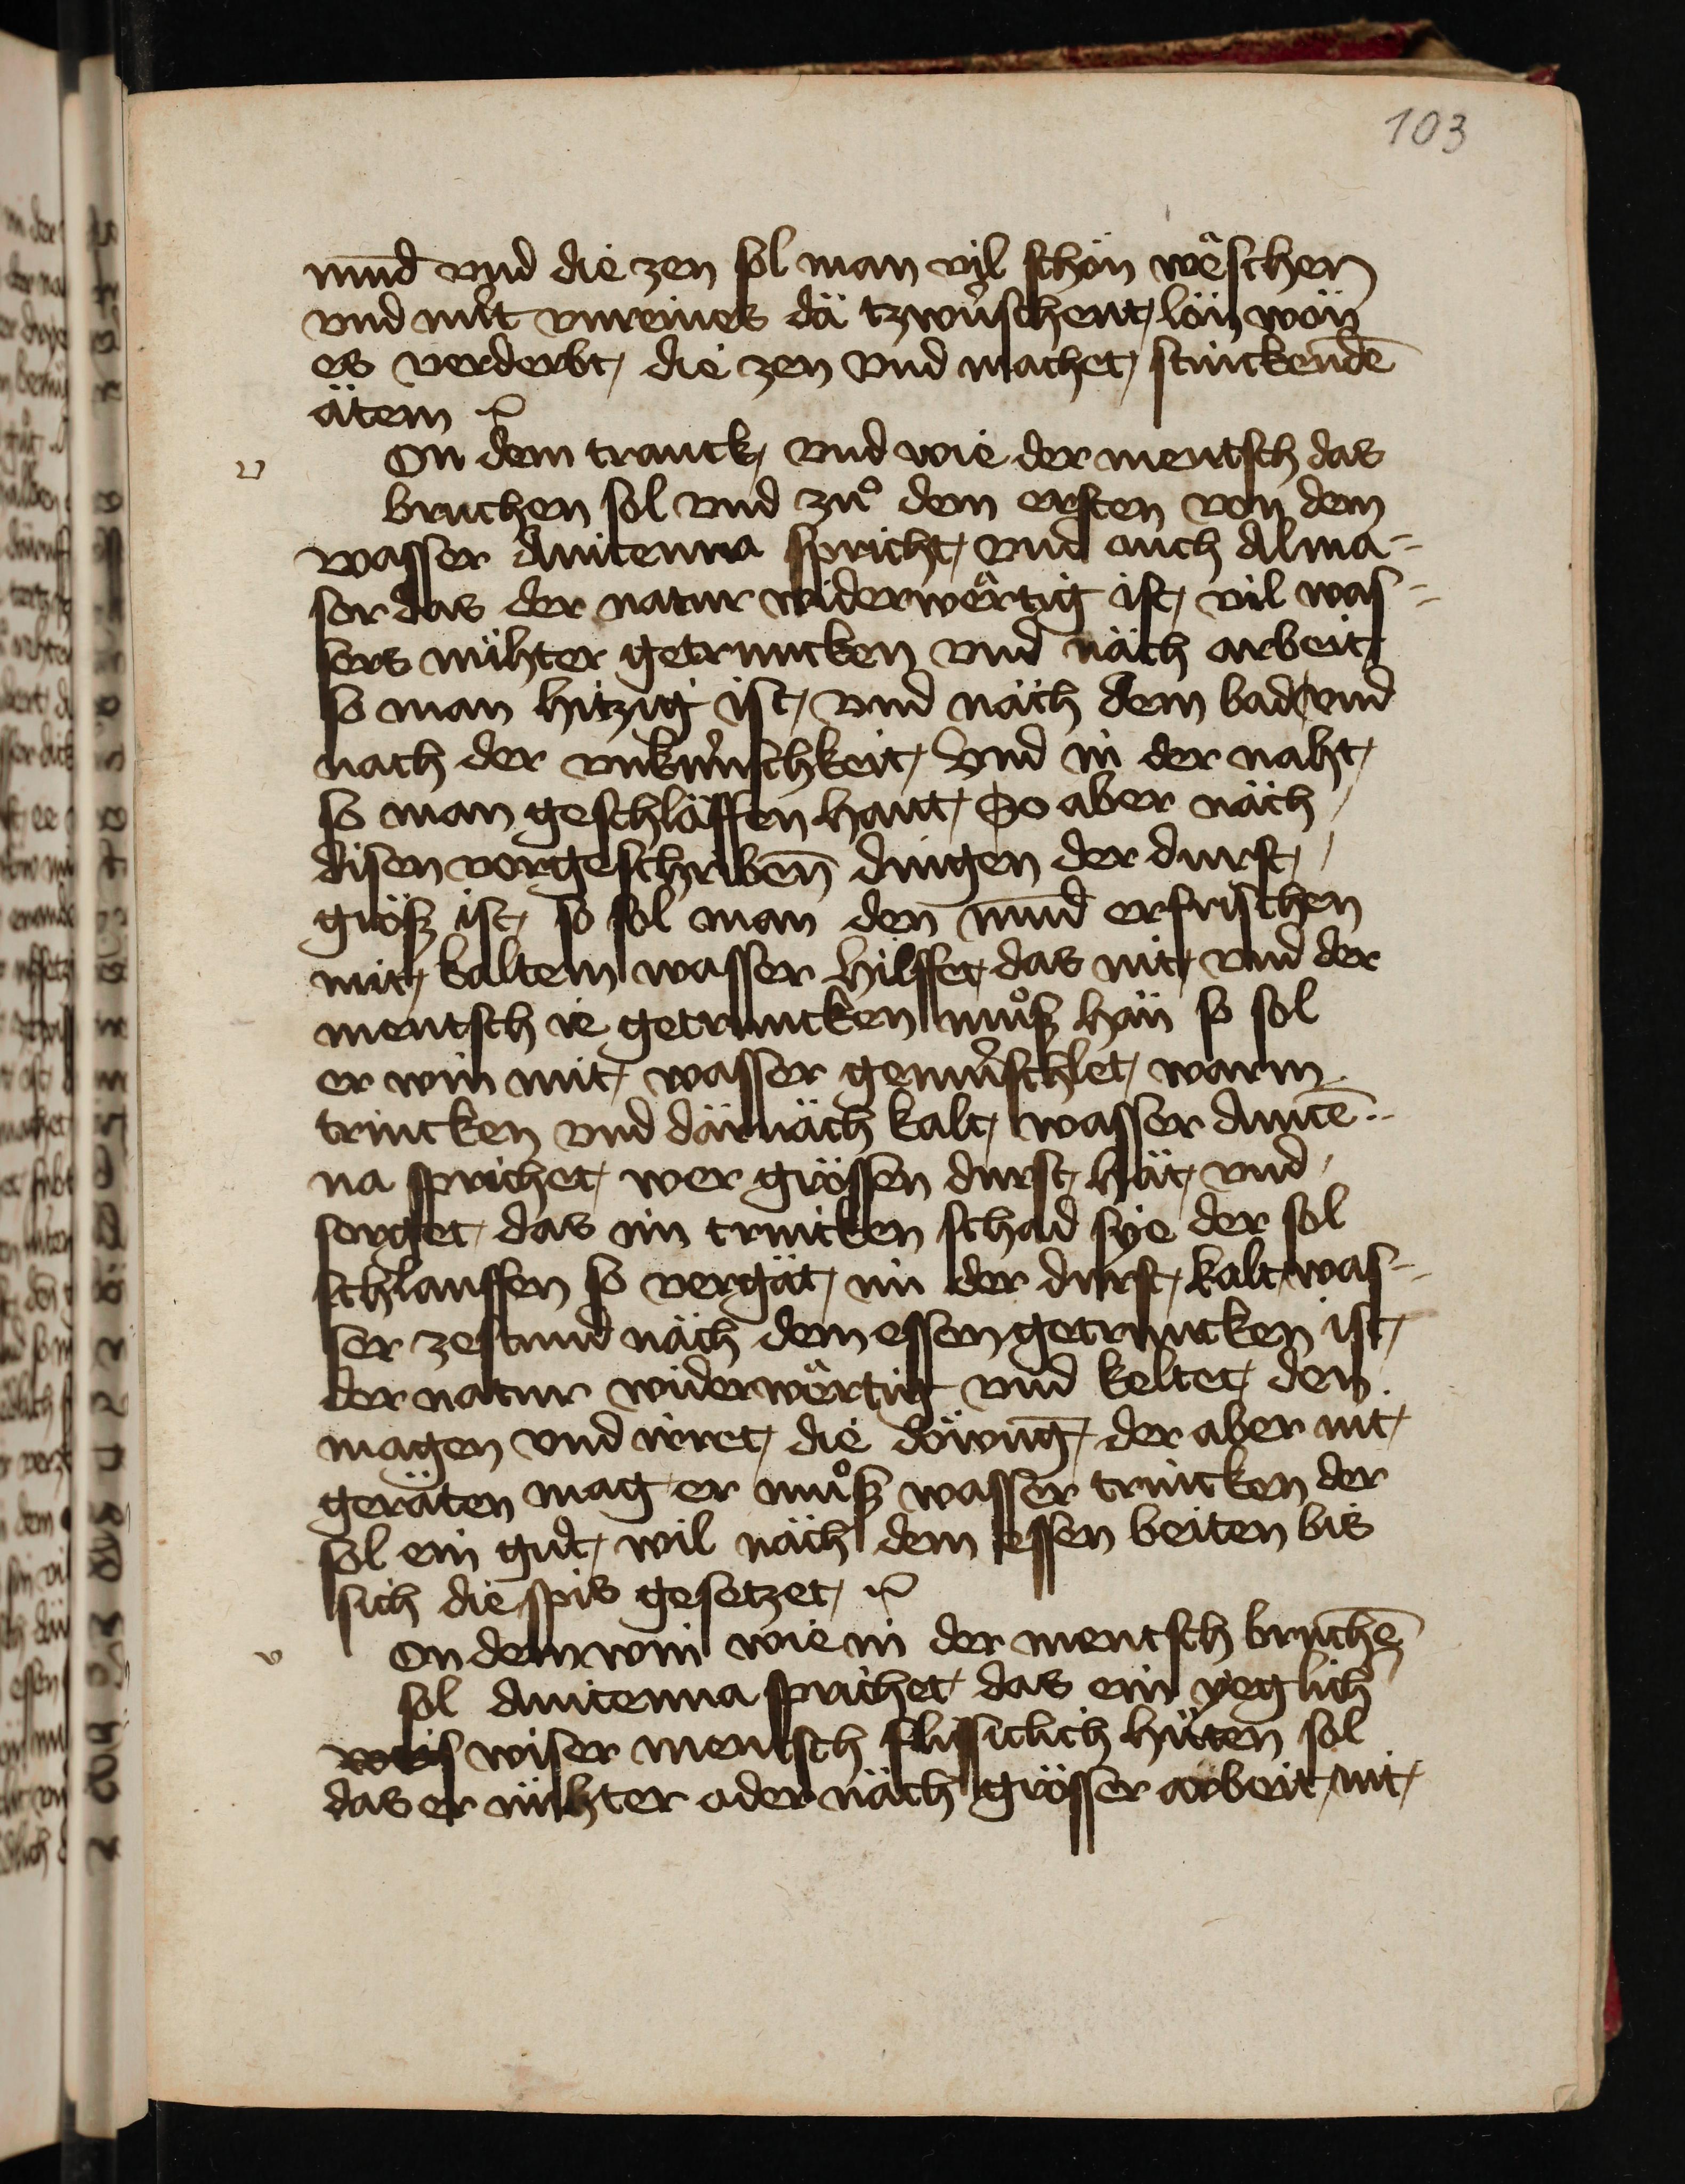 103
mund vnd die zen sol man vil schön wêschen
vnd nǔt vnreines dä tzwǔschent lön won
es verderbt die zen vnd machet stinckendē
ätem
v On dem tranck vnd wie der mentsch das
bruchen sol vnd zuͦ dem ersten von dem
wasser Auicenna spricht vnd auch Alma-
sor das der natur widerwêrtig ist vil was-
sers nühter getruncken vnd näch arbeit
so man hitzig ist vnd näch dem bad vnd
nach der vnkǔschkeit vnd in der naht
so man geschläffen haut So aber näch
disen vorgeschribenn̄ dingen der durst
grösz ist so sol man den mund erfrischen
mit kaltem wasser hilffet das nit vnd der
mentsch ie getruncken muͦsz hän so sol
er win mit wasser gemǔschlet warm
trincken vnd därnäch kalt wasser Auicē-
na sprichet wer grössen durst hät vnd
sorget das im trincken schad sye der sol
schlauffen so vergät im der durst kalt was-
ser zestund näch dem essen getruncken ist
der natur widerwêrtig vnd keltet den
magen vnd irret die döwung der aber nit
geräten mag er muͦsz wasser trincken der
sol ein gut wil näch dem essen beiten bis
sich die spis gesetzet
v On dem win wie in der mentsch bruchē
sol Auicenna sprichet das ein yeglich
wiser mentsch flissiclich hüten sol
das er nühter oder näch grösser arbeit nit